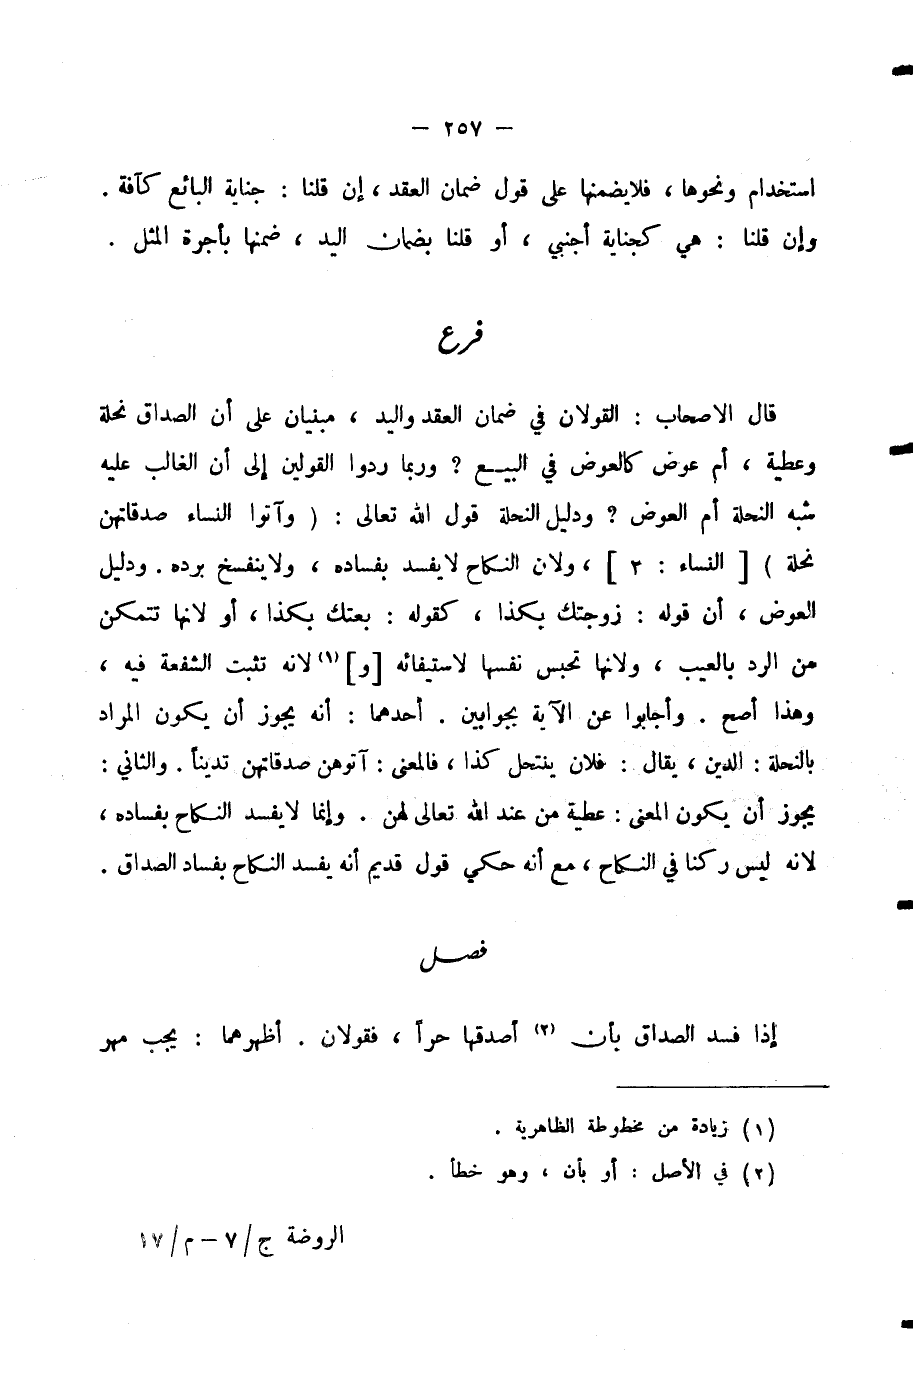 — ٢٥٧ —
استخدام ونحوها ، فلايضمنها على قول ضمان العقد ، إن قلنا : جناية البائع كآفة .
وإن قلنا : هي كجناية أجنبي ، أو قلنا بضمان اليد ، ضمنها بأجرة المثل .
فرع
قال الاصحاب : القولان في ضمان العقد واليد ، مبنيان على أن الصداق نحلة
وعطية ، أم عوض كالعوض في البيع ? وربما ردوا القولين إلى أن الغالب عليه
شبه النحلة أم العوض ? ودليل النحلة قول الله تعالى : ( وآتوا النساء صدقاتهن
نحلة ) [ النساء : ٣ ] ، ولان النكاح لايفسد بفساده ، ولاينفسخ برده . ودليل
العوض ، أن قوله : زوجتك بكذا ، كقوله : بعتك بكذا ، أو لانها تتمكن
من الرد بالعيب ، ولانها تحبس نفسها لاستيفائه [و] (١) لانه تثبت الشفعة فيه ،
وهذا أصح . وأجابوا عن الآية بجوابين . أحدهما : أنه يجوز أن يكون المراد
بالنحلة : الدين ، يقال : فلان ينتحل كذا ، فالمعنى : آتوهن صدقاتهن تديناً . والثاني :
يجوز أن يكون المعنى : عطية من عند الله تعالى لهن . وإنما لايفسد النكاح بفساده ،
لانه ليس ركنا في النكاح ، مع أنه حكي قول قديم أنه يفسد النكاح بفساد الصداق .
فصل
إذا فسد الصداق بأن (٢) أصدقها حراً ، فقولان . أظهرهما : يجب مهر
(١) زيادة من مخطوطة الظاهرية .
(٢) في الأصل : أو بأن ، وهو خطأ .
الروضة ج/٧ – م/١٧